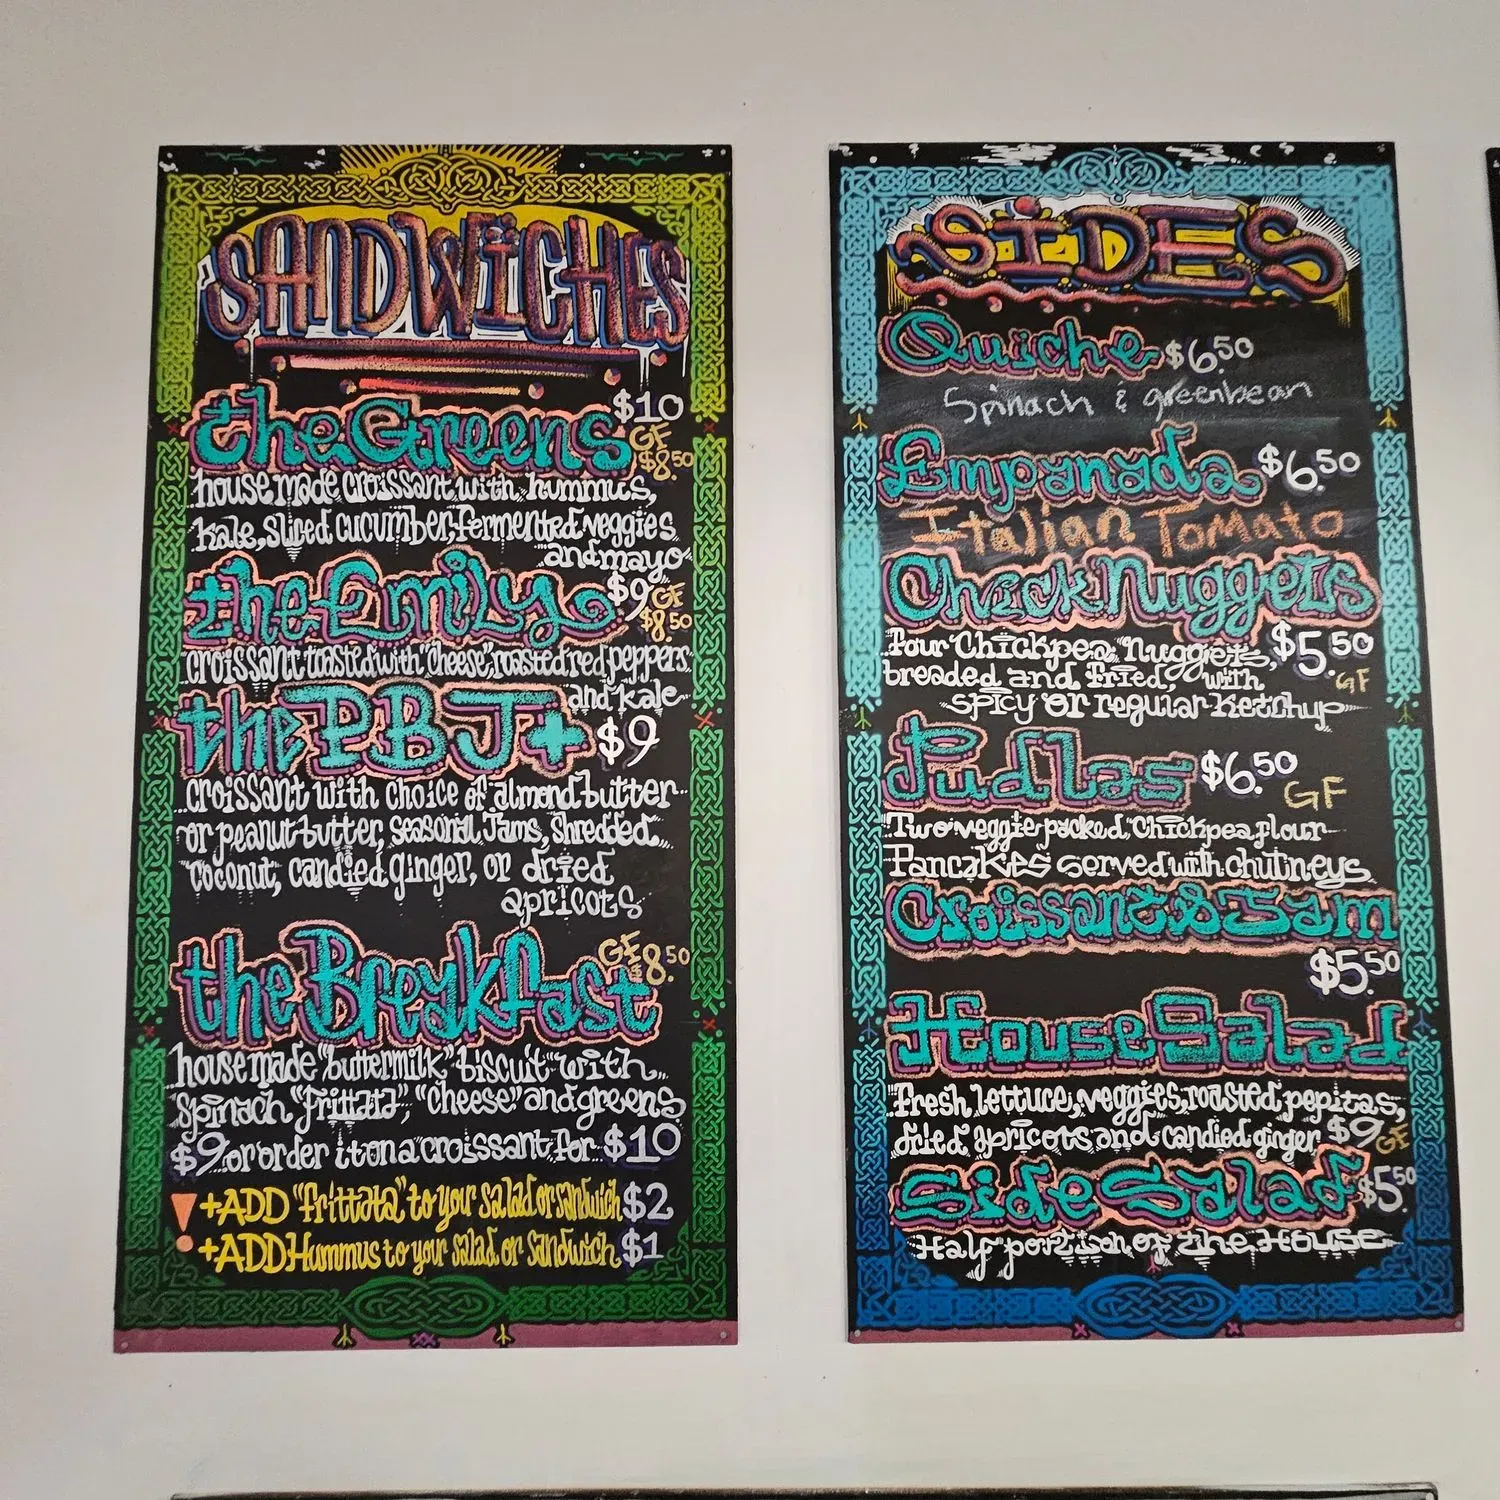 SANDWiCHES
the Greens $10
GF
$8.50
house made croissant with hummus,
kale, sliced cucumber, fermented veggies
and mayo
the Emily $9 GF
$8.50
croissant toasted with "cheese", roasted red peppers
and kale
the PBJ+ $9
croissant with choice of almond butter
or peanut butter, seasonal Jams, shredded
coconut, candied ginger, or dried
apricots
the Breykfast GF $8.50
house made "buttermilk" biscuit with
spinach "frittata", "cheese" and greens
$9 or order it on a croissant for $10
! +ADD "frittata" to your salad or sandwich $2
+ADD Hummus to your salad or sandwich $1
SiDES
Quiche $6.50
Spinach & greenbean
Empanada $6.50
Italian Tomato
Chick Nuggets
Four Chickpea Nuggets, $5.50
breaded and fried, with GF
spicy or regular ketchup
Pudlas $6.50 GF
Two veggie packed, Chickpea flour
Pancakes served with chutneys
Croissant & Jam
$5.50
House Salad
Fresh lettuce, veggies, roasted pepitas,
dried apricots and candied ginger $9 GF
Side Salad $5.50
Half portion of the House